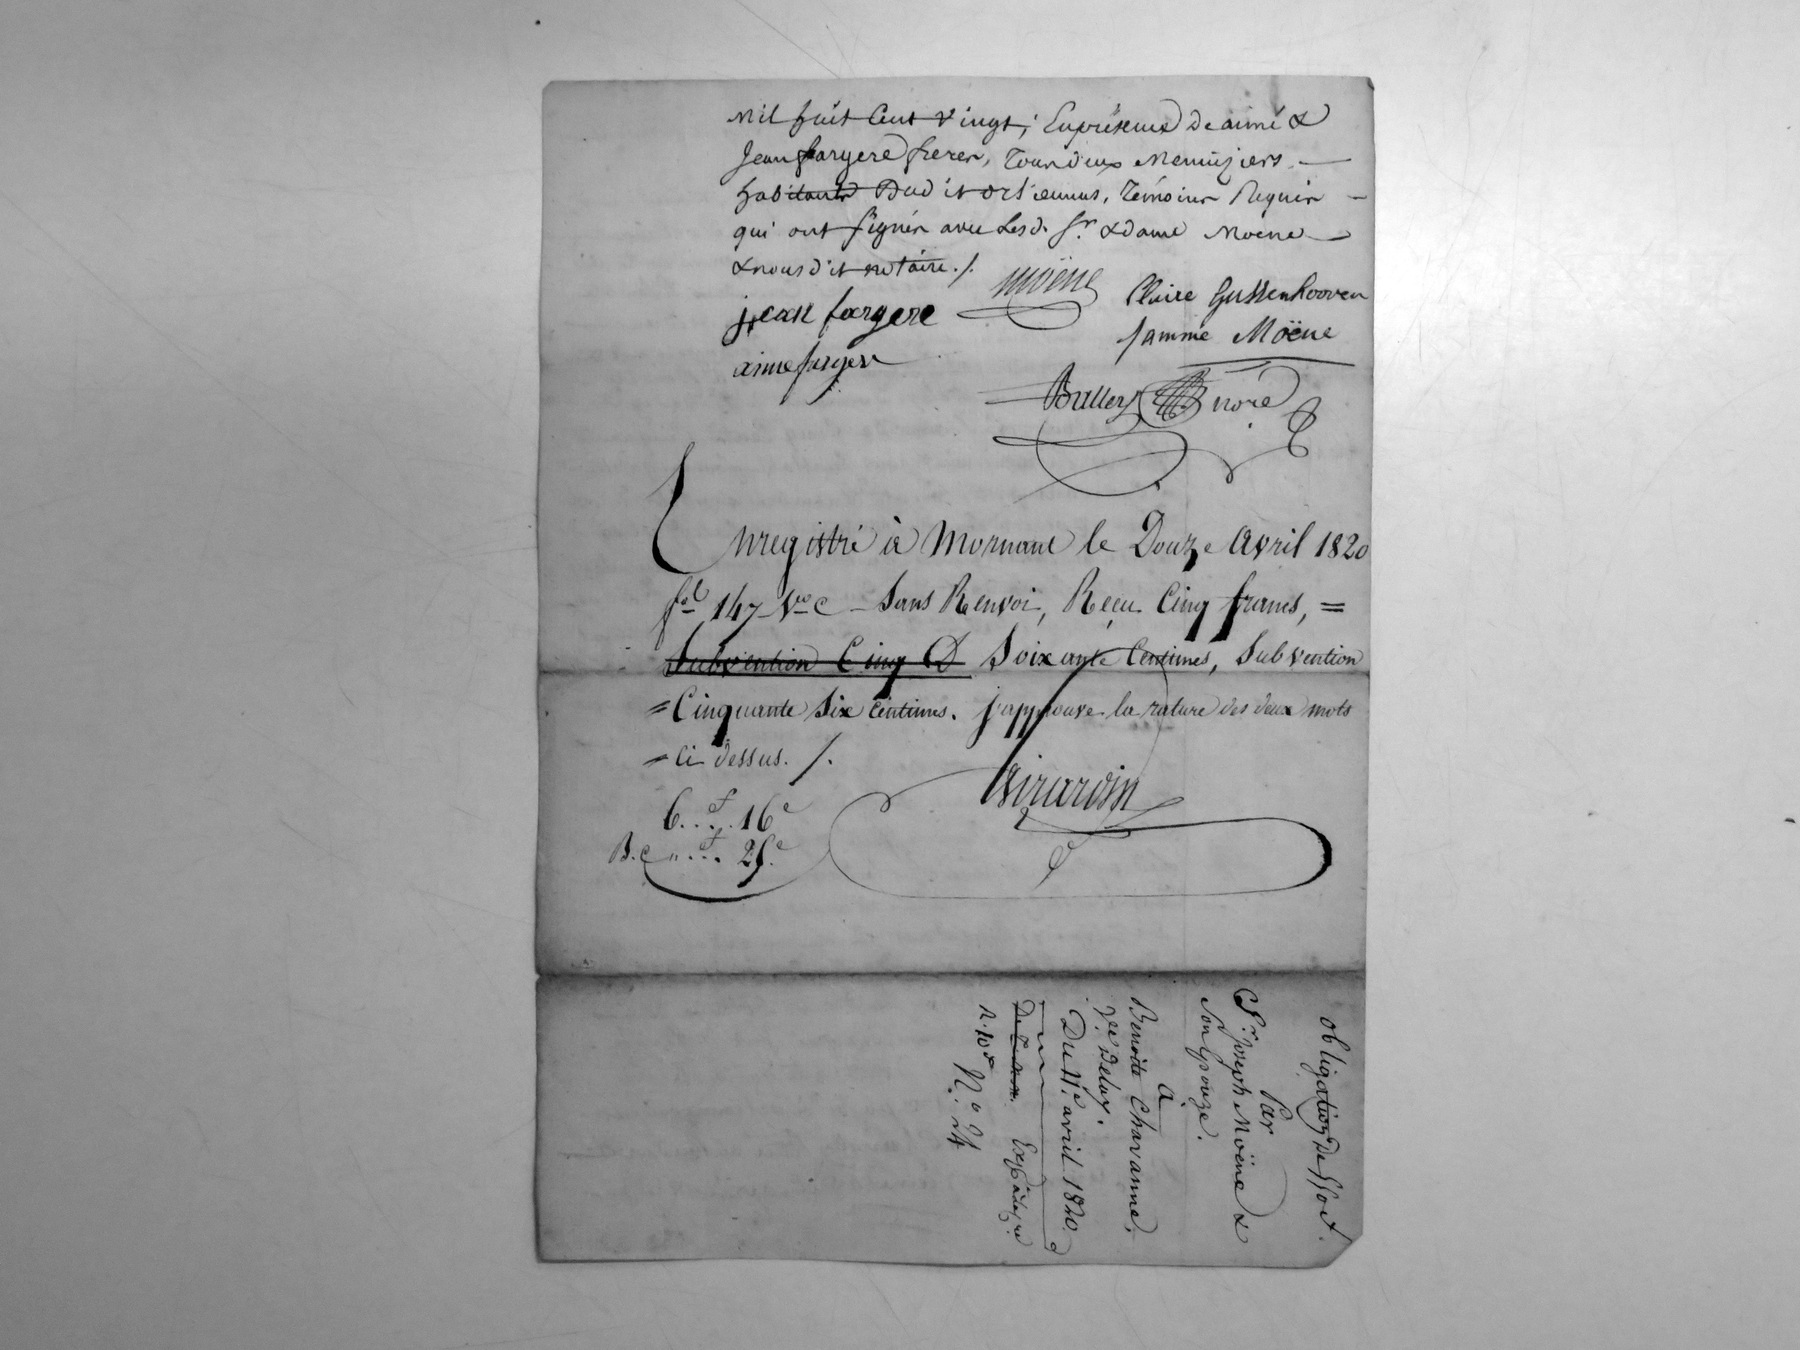 Mil huit Cent vingt; En présence De aimé &
Jean fargere freres, Tous deux Menuziers —
habitants Dud it orliennas, Témoins Requis —
qui ont signés avec Lesd. Sr. & dame Moëne —
& nous d'it notaire ./.
Moëne
Claire Gussenhooven
famme Moëne
jean fargere
aime fargere
Bullery nore
Enregistré à Mornant le Douze avril 1820
fol 147 vo c — Sans Renvoi, Reçu Cinq francs, =
Subvention Cinq D Soixante Centimes, Subvention
= Cinquante Six Centimes. j'approuve la rature des deux mots
= ci dessus. /.
6..f..16c
B.c „..f.. 25.c
Girardin
obligation De 550 f.
Par
Sr. Joseph Moëne &
Son Epouze.
A
Benoite Chavanne,
Ve. Delay.
Du 11e. avril 1820.
No. 24